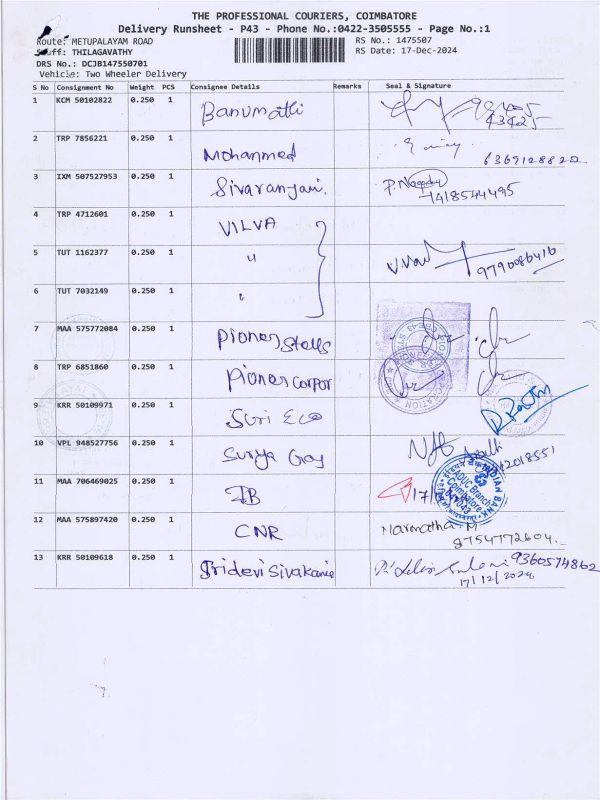 THE PROFESSIONAL COURIERS, COIMBATORE
Delivery Runsheet - P43 - Phone No.:0422-3505555 - Page No.:1
Route: METUPALAYAM ROAD RS No.: 1475507
Staff: THILAGAVATHY RS Date: 17-Dec-2024
DRS No.: DCJB147550701
Vehicle: Two Wheeler Delivery
S No Consignment No Weight PCS Consignee Details Remarks Seal & Signature
1 KCM 50102822 0.250 1 Banumathi
43425
2 TRP 7856221 0.250 1 Mohanmed 6369128822
3 IXM 507527953 0.250 1 Sivaranjani.
7418544495
4 TRP 4712601 0.250 1 VILVA
5 TUT 1162377 0.250 1 " 9790086416
6 TUT 7032149 0.250 1 "
7 MAA 575772084 0.250 1 Pioner Steels
8 TRP 6851860 0.250 1 Pioner corpor
9 KRR 50109971 0.250 1 Suri Eco
10 VPL 948527756 0.250 1 Surya Gay
11 MAA 706469025 0.250 1 IB 17/
INDIAN BANK
Coimbatore
12 MAA 575897420 0.250 1 CNR Narmatha. M
8754772604.
13 KRR 50109618 0.250 1 Sridevi Sivakami 9360574862
17/12/2024